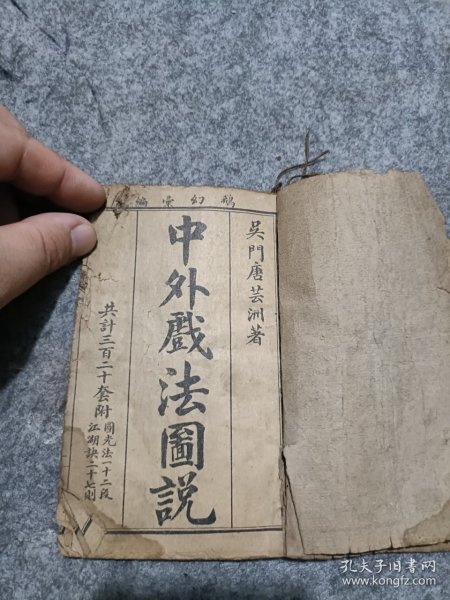 鵝幻彙編
吳門唐芸洲著
中外戲法圖說
共計三百二十套附
圓光法一十二段
江湖訣二十七則
孔夫子旧书网
www.kongfz.com